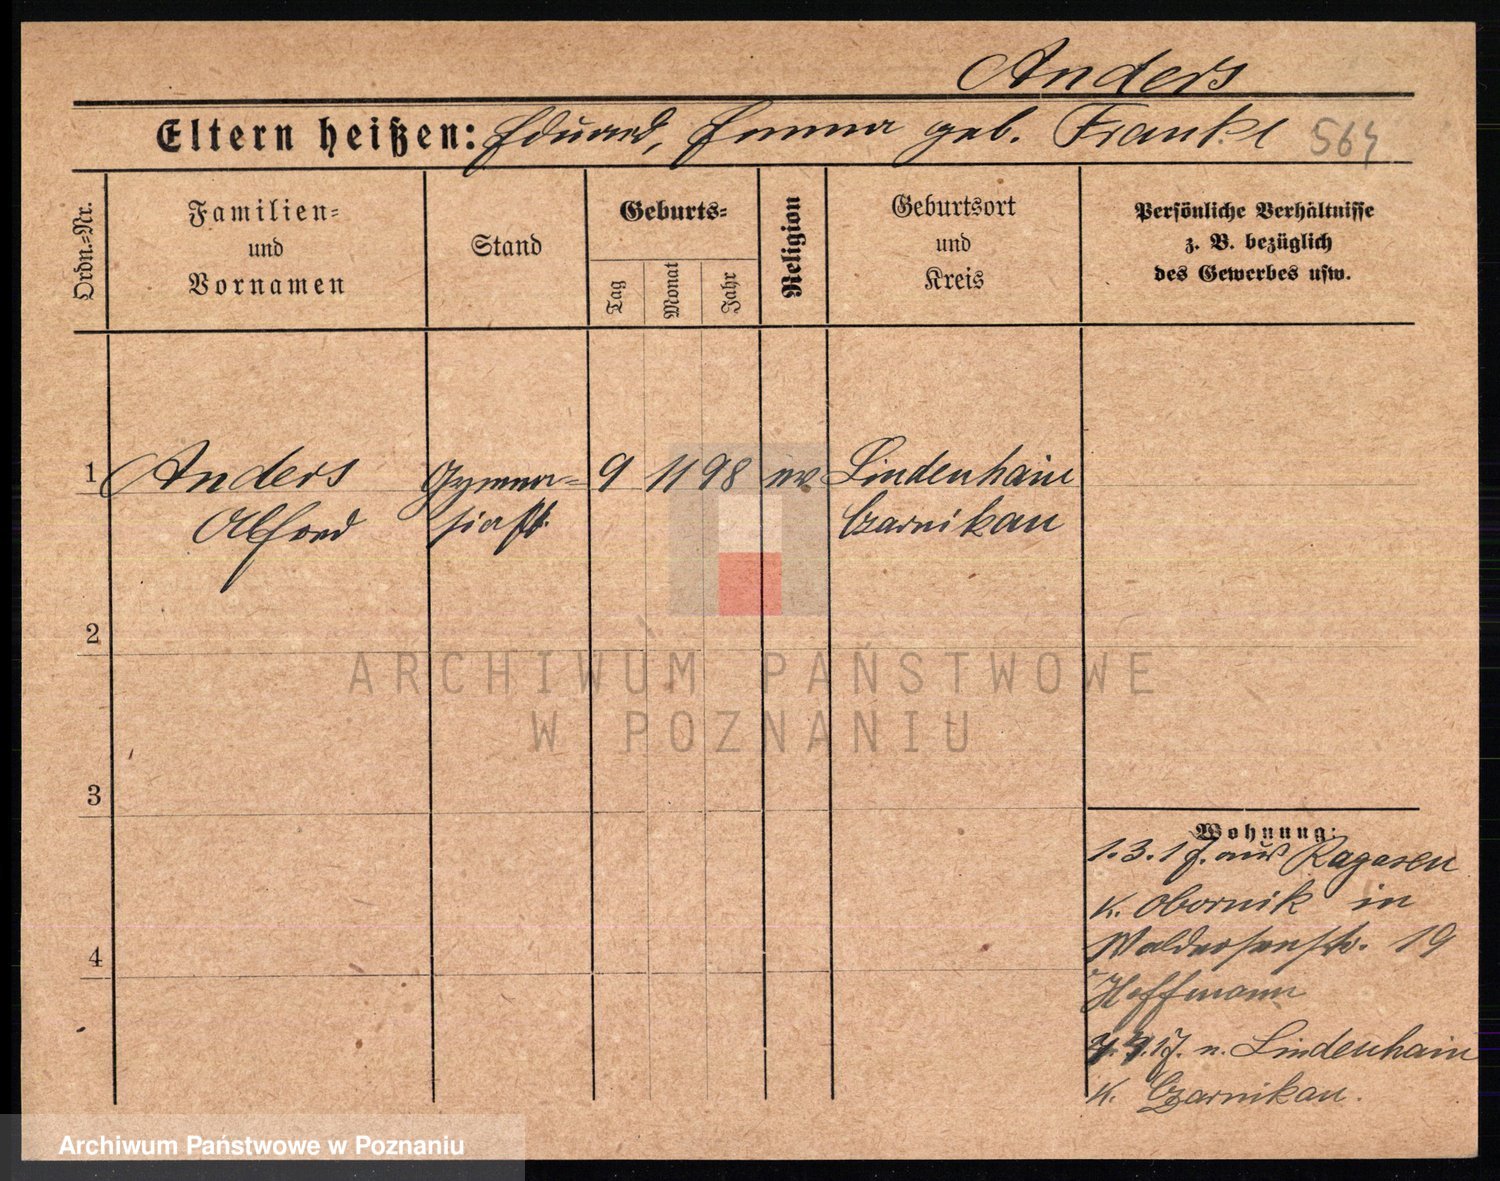 Anders
Eltern heißen: Eduard, Emma geb. Franke 564
Ordn.=Nr.
Familien=
und
Vornamen
Stand
Geburts=
Tag
Monat
Jahr
Religion
Geburtsort
und
Kreis
Persönliche Verhältnisse
z. B. bezüglich
des Gewerbes usw.
1 Anders Gymna= 9 11 98 ev Lindenhain
Alfred siast. Czarnikau
2
3
4
Wohnung:
1.3.17. aus Rogasen
K. Obornik in
Walderseestr. 19
Hoffmann
4.17. n. Lindenhain
K. Czarnikau.
ARCHIWUM PAŃSTWOWE
W POZNANIU
Archiwum Państwowe w Poznaniu